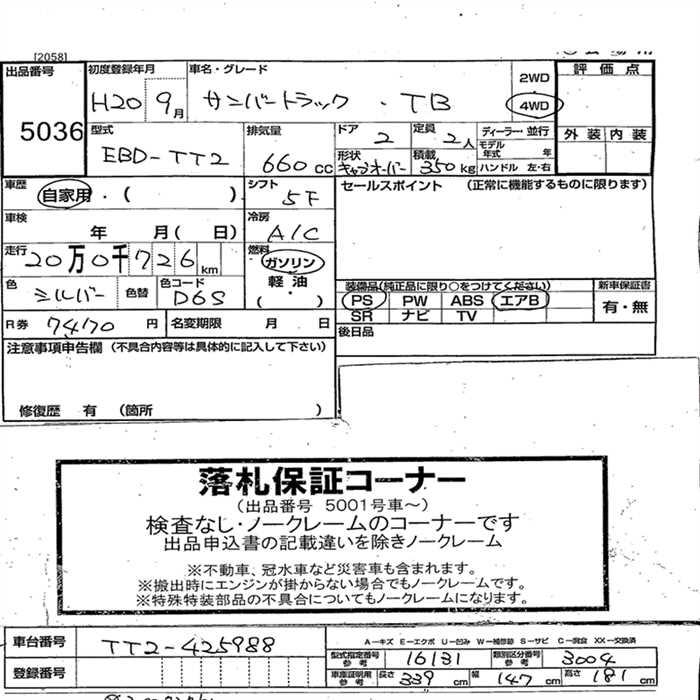 [2058]
出品番号 5036
初度登録年月 H20 9月
車名・グレード サンバートラック・TB
2WD
4WD
評価点
外装 内装
型式 EBD-TT2
排気量 660cc
ドア 2
定員 2人
ディーラー・並行
モデル年式 年
形状 キャブオーバー
積載 350kg
ハンドル 左・右
車歴 自家用・( )
シフト 5F
セールスポイント (正常に機能するものに限ります)
車検 年 月( 日)
冷房 A/C
走行 20万0千726km
燃料 ガソリン
軽油
・( )
色 シルバー
色替
色コード D6S
装備品(純正品に限り○をつけてください)
PS PW ABS エアB
SR ナビ TV
新車保証書
有・無
R券 7470円
名変期限 月 日
後日品
注意事項申告欄 (不具合内容等は具体的に記入して下さい)
修復歴 有 (箇所 )
落札保証コーナー
(出品番号 5001号車〜)
検査なし・ノークレームのコーナーです
出品申込書の記載違いを除きノークレーム
※不動車、冠水車など災害車も含まれます。
※搬出時にエンジンが掛からない場合でもノークレームです。
※特殊特装部品の不具合についてもノークレームになります。
車台番号 TT2-425988
A-キズ E-エクボ U-凹み W-補修跡 S-サビ C-腐食 XX-交換済
型式指定番号 参考 16131
類別区分番号 参考 3004
登録番号
車庫証明用 参考 長さ 339cm 幅 147cm 高さ 181cm